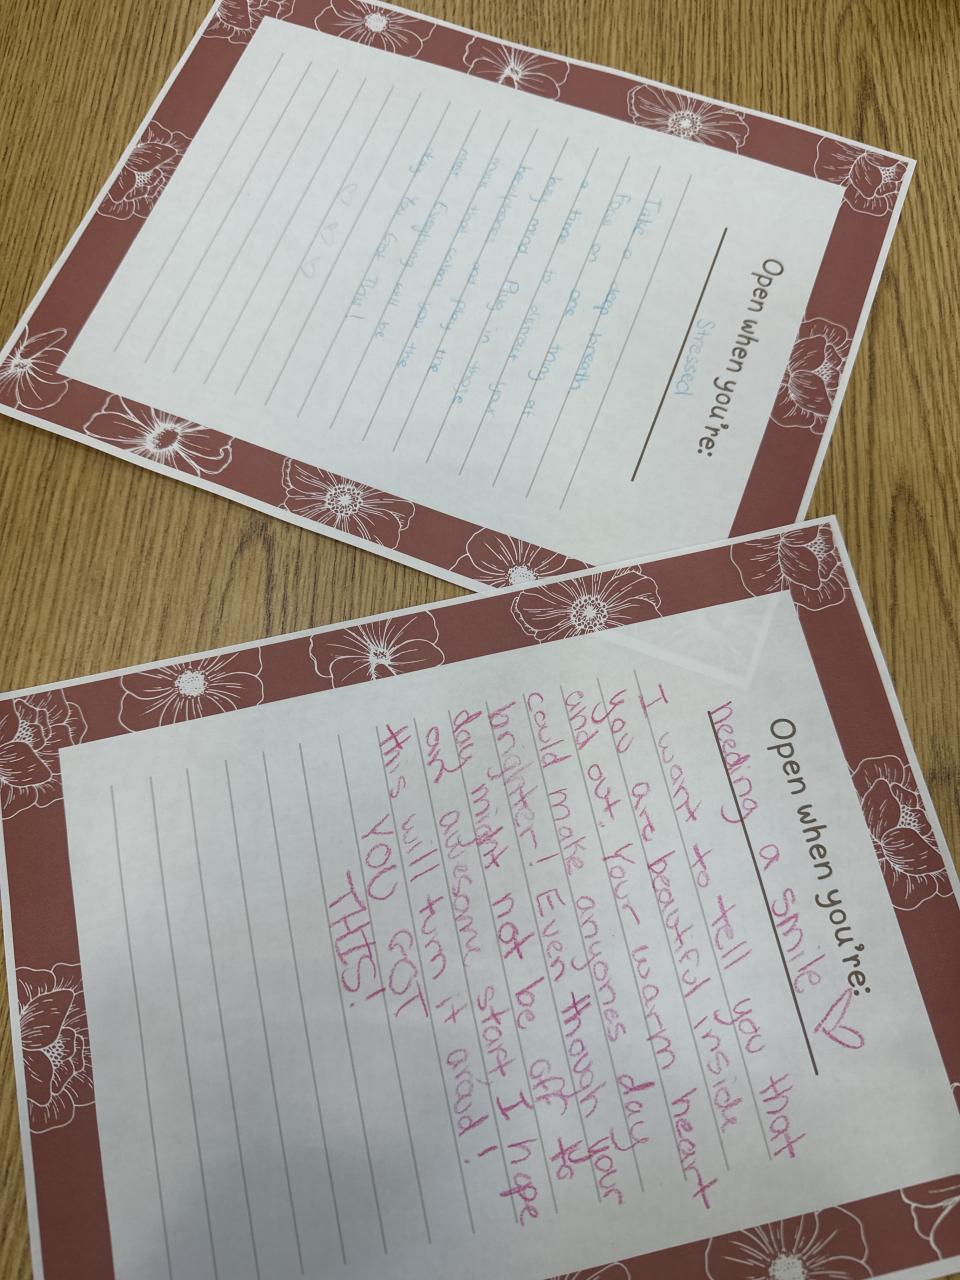 Open when you're:
Stressed
Take a deep breath
Focus on one thing at
a time to destress your
headphones and play the
most Everything will be
okay You Got This!
Open when you're:
needing a smile
I want to tell you that
you are beautiful inside
and out. Your warm heart
could make anyones day
brighter! Even though your
day might not be off to
an awesome start, I hope
this will turn it aroud!
YOU GOT
THIS!